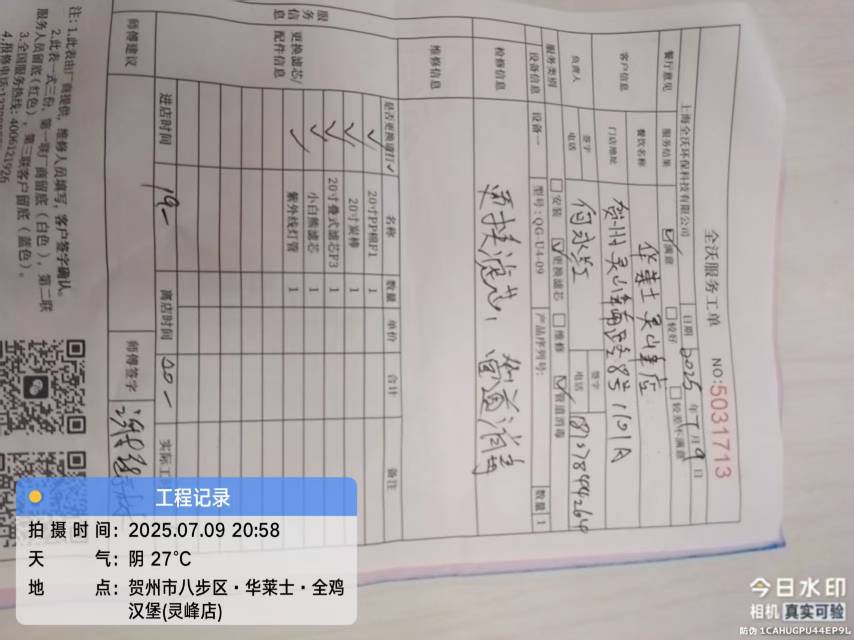 全沃服务工单
NO:5031713
上海全沃环保科技有限公司
日期 2025 年 7 月 9 日
餐厅意见
服务结果
满意
较好
较差不满意
客户信息
餐饮名称
华莱士灵山店
门店地址
负责人
签字
何永红
签字
电话
电话
服务类别
安装
更换滤芯
维修
管道消毒
设备信息
设备一
型号:QG-U4-09
产品序列号:
数量 1
检修信息
更换滤芯,
管道消毒
维修信息
更换滤芯/
配件信息
是否更换请打✓
名称
数量
单价
合计
备注
✓
20寸PP棉F1
1
✓
20寸炭棒
1
✓
20寸叠式滤芯F3
1
✓
小白熊滤芯
1
✓
紫外线灯管
1
服务
信息
进店时间
19—
离店时间
20—
师傅建议
师傅签字
注:1.此表由厂商提供,维修人员填写,客户签字确认。
2.此表一式三份,第一联厂商留底(白色),第二联
服务人员留底(红色),第三联客户留底(蓝色)。
3.全国服务热线:4006121926
工程记录
拍摄时间:2025.07.09 20:58
天气:阴 27°C
地点:贺州市八步区·华莱士·全鸡
汉堡(灵峰店)
今日水印
相机 真实可验
防伪 1CAHUGPU44EP9L